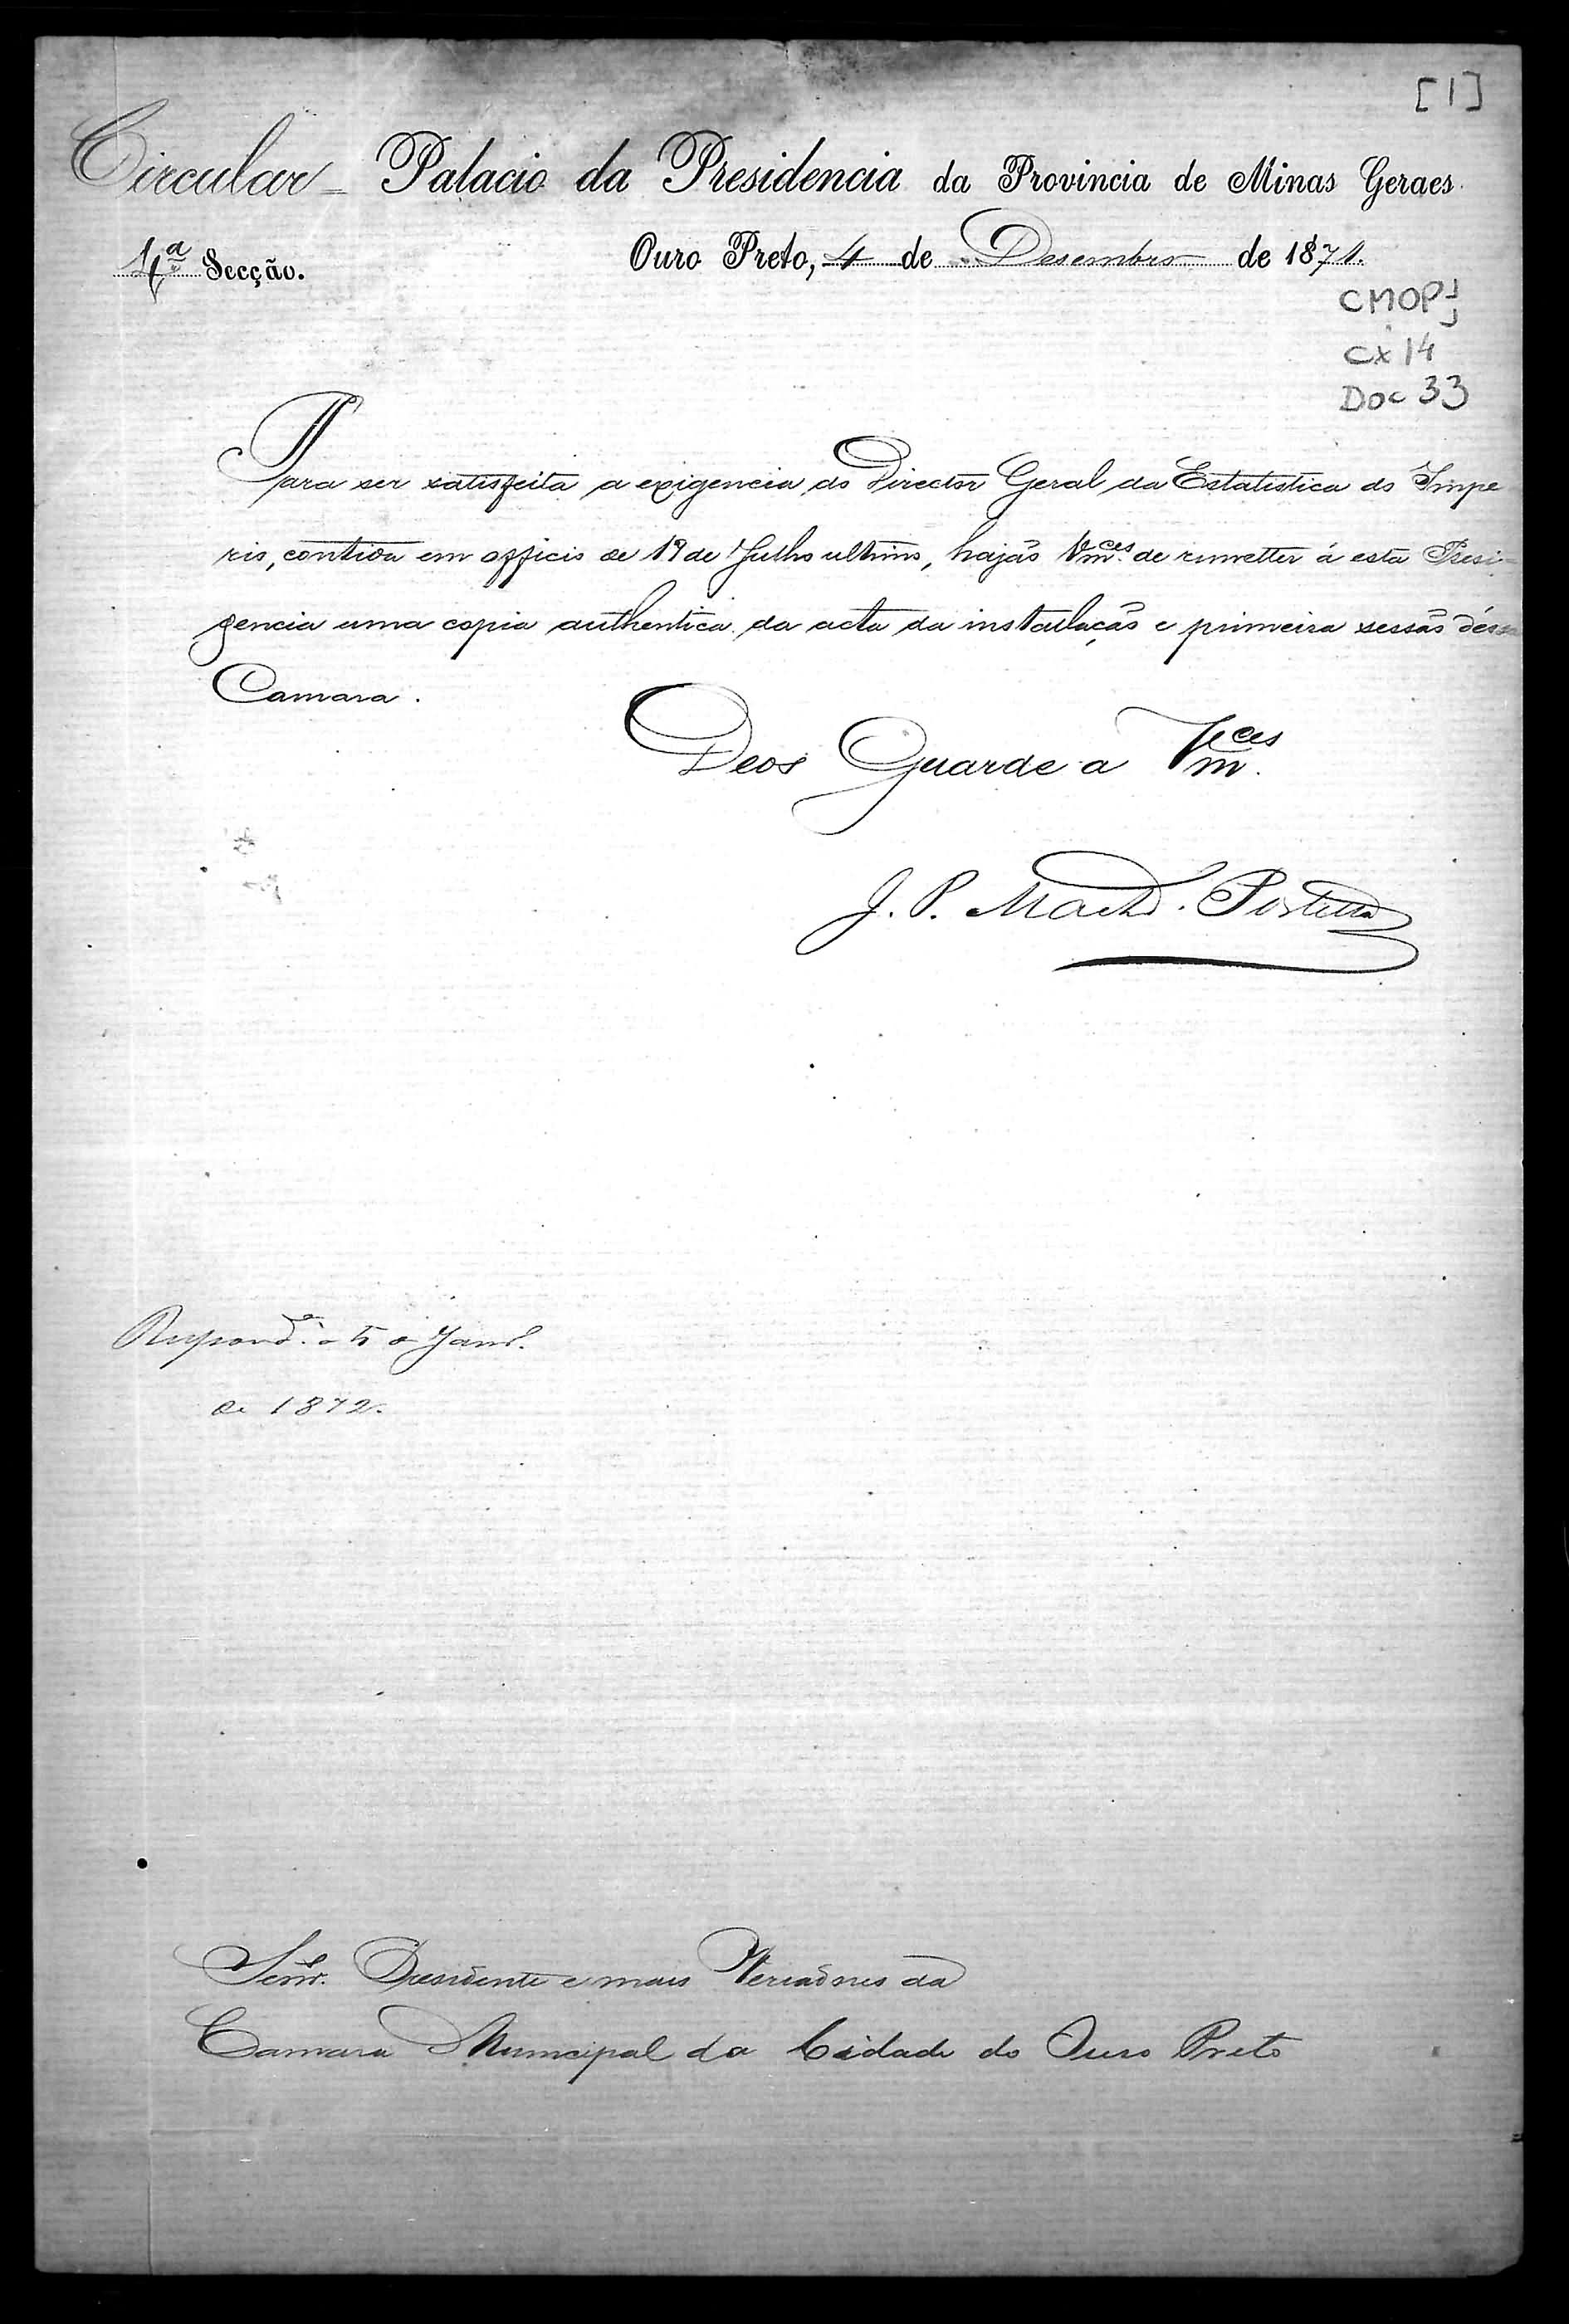 [1]
Circular – Palacio da Presidencia da Provincia de Minas Geraes.
4ª Secção. Ouro Preto, 4 de Desembro de 1871.
CMOP
Cx 14
Doc 33
Para ser satisfeita a exigencia do Director Geral da Estatistica do Impe
rio, contida em officio de 19 de Julho ultimo, hajão Vmces. de remetter á esta Presi-
dencia uma copia authentica da acta da installação e primeira sessão déssa
Camara.
Deos Guarde a Vmces.
J. P. Machdo. Portella
Respond. a 5 de Janro.
de 1872.
Senr. Presidente e mais Vereadores da
Camara Municipal da Cidade do Ouro Preto